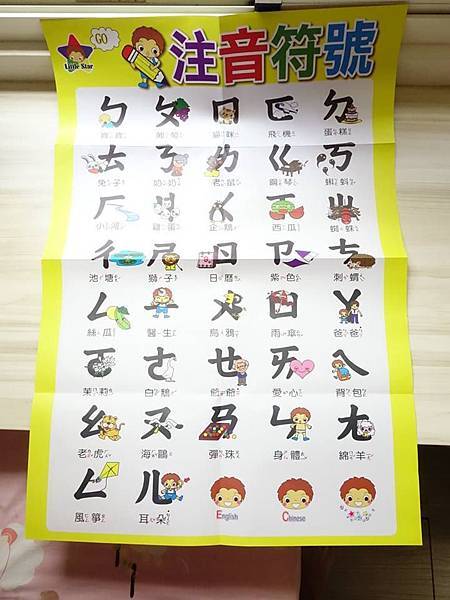 GO
Little Star
注音符號
ㄅ ㄆ ㄇ ㄈ ㄉ
葡萄 貓咪 飛機 蛋糕
ㄊ ㄋ ㄌ ㄍ ㄎ
兔子 奶奶 老鼠 鋼琴 蝌蚪
ㄏ ㄐ ㄑ ㄒ ㄓ
小河 雞蛋 西瓜 蜘蛛
ㄔ ㄕ ㄖ ㄗ ㄘ
池塘 獅子 日曆 紫色 刺蝟
ㄙ ㄧ ㄨ ㄩ ㄚ
絲瓜 醫生 烏鴉 雨傘 爸爸
ㄛ ㄜ ㄝ ㄞ ㄟ
茉莉 白鵝 爺爺 愛心 背包
ㄠ ㄡ ㄢ ㄣ ㄤ
老虎 海鷗 彈珠 身體 綿羊
ㄥ ㄦ
風箏 耳朵 English Chinese